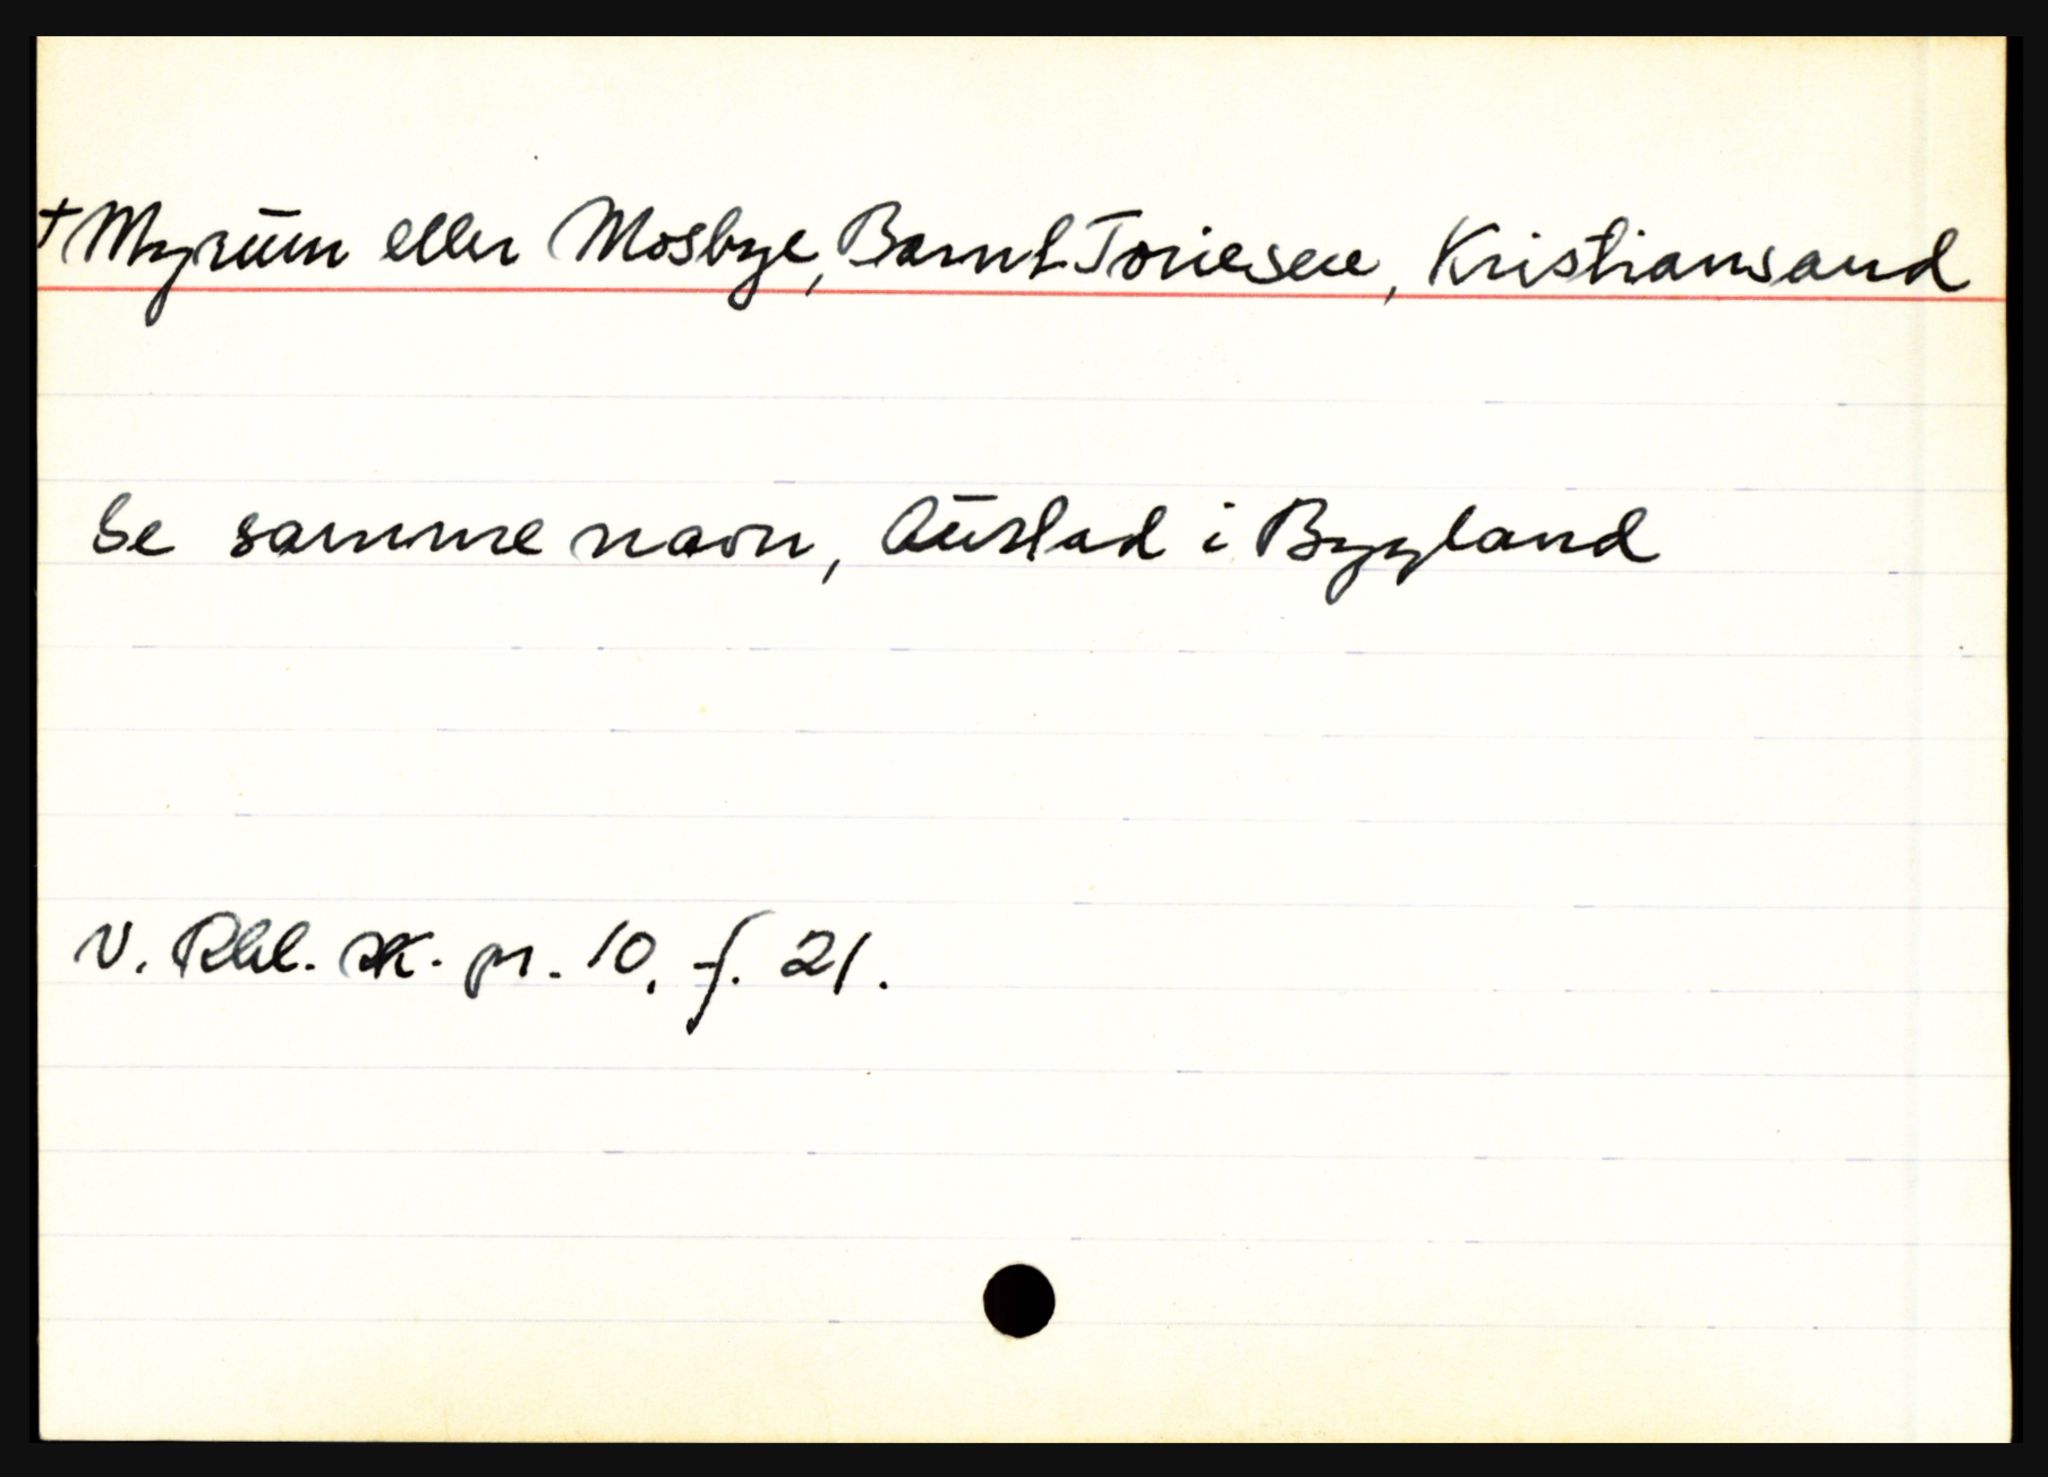 + Myrum eller Mosbye, Barnt Toriesen, Kristiansand
Se samme navn, Austad i Bygland
N. Rbl. sk. pr. 10, f. 21.